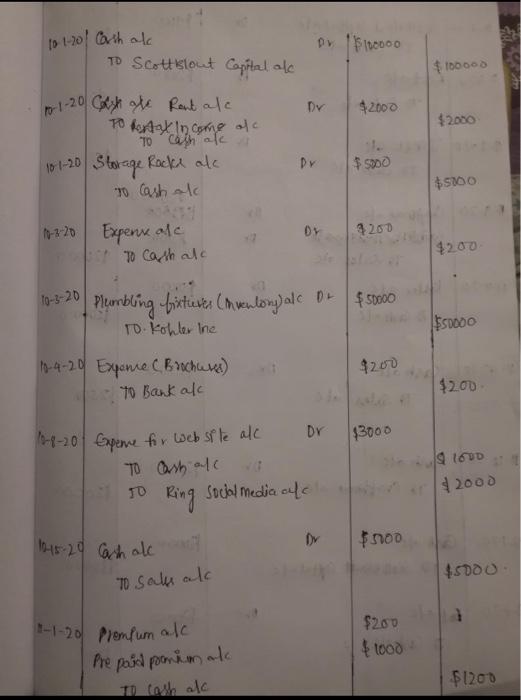 10-1-20 Cash a/c Dr $100000
TO Scottslout Capital a/c $100000
10-1-20 Rent a/c Dr $2000
TO Rental Income a/c $2000
TO Cash a/c
10-1-20 Storage Racks a/c Dr $5000
TO Cash a/c $5000
10-3-20 Expense a/c Dr $200
TO Cash a/c $200
10-3-20 Plumbling fixtures (Inventory) a/c Dr $50000
TO. Kohler Inc $50000
10-4-20 Expense (Brochures) $200
TO Bank a/c $200
10-8-20 Expense for Web site a/c Dr $3000
TO Cash a/c $1000
TO Ring Social media a/c $2000
10-15-20 Cash a/c Dr $5000
TO Sales a/c $5000
11-1-20 Premium a/c $200
Pre paid premium a/c $1000
TO Cash a/c $1200